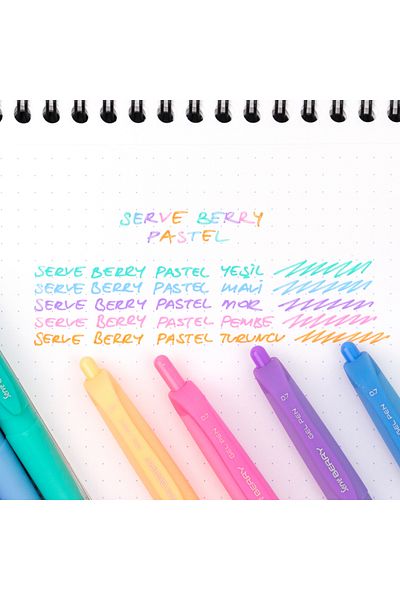 SERVE BERRY
PASTEL
SERVE BERRY PASTEL YEŞİL
SERVE BERRY PASTEL MAVİ
SERVE BERRY PASTEL MOR
SERVE BERRY PASTEL PEMBE
SERVE BERRY PASTEL TURUNCU
Serve
GEL PEN
GEL PEN
Serve BERRY
GEL PEN
BERRY